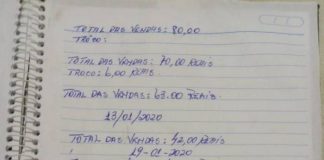 TOTAL DAS VENDAS: 80,00
TROCO:
TOTAL DAS VENDAS: 70,00 REAIS
TROCO: 6,00 REAIS.
TOTAL DAS VENDAS: 63.00 REAIS.
13/01/2020
TOTAL DAS VENDAS: 42,00 REAIS
19-01-2020